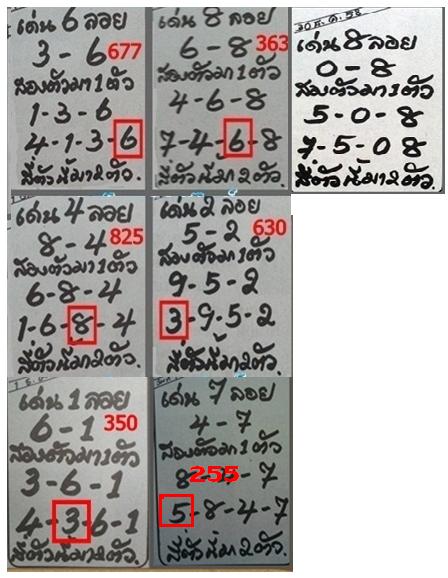 เด่น 6 ลอย
3 - 6 677
สองตัวมา 1 ตัว
1 - 3 - 6
4 - 1 - 3 - 6
สี่ตัวนี้มา 2 ตัว.
เด่น 8 ลอย
6 - 8 363
สองตัวมา 1 ตัว
4 - 6 - 8
7 - 4 - 6 - 8
สี่ตัวนี้มา 2 ตัว.
เด่น 8 ลอย
0 - 8
สองตัวมา 1 ตัว
5 - 0 - 8
7 - 5 - 0 8
สี่ตัวนี้มา 2 ตัว.
เด่น 4 ลอย
8 - 4 825
สองตัวมา 1 ตัว
6 - 8 - 4
1 - 6 - 8 - 4
สี่ตัวนี้มา 2 ตัว.
เด่น 2 ลอย
5 - 2 630
สองตัวมา 1 ตัว
9 - 5 - 2
3 - 9 - 5 - 2
สี่ตัวนี้มา 2 ตัว.
เด่น 1 ลอย
6 - 1 350
สองตัวมา 1 ตัว
3 - 6 - 1
4 - 3 - 6 - 1
สี่ตัวนี้มา 2 ตัว.
เด่น 7 ลอย
4 - 7
สองตัวมา 1 ตัว
8 - 255 - 7
5 - 8 - 4 - 7
สี่ตัวนี้มา 2 ตัว.